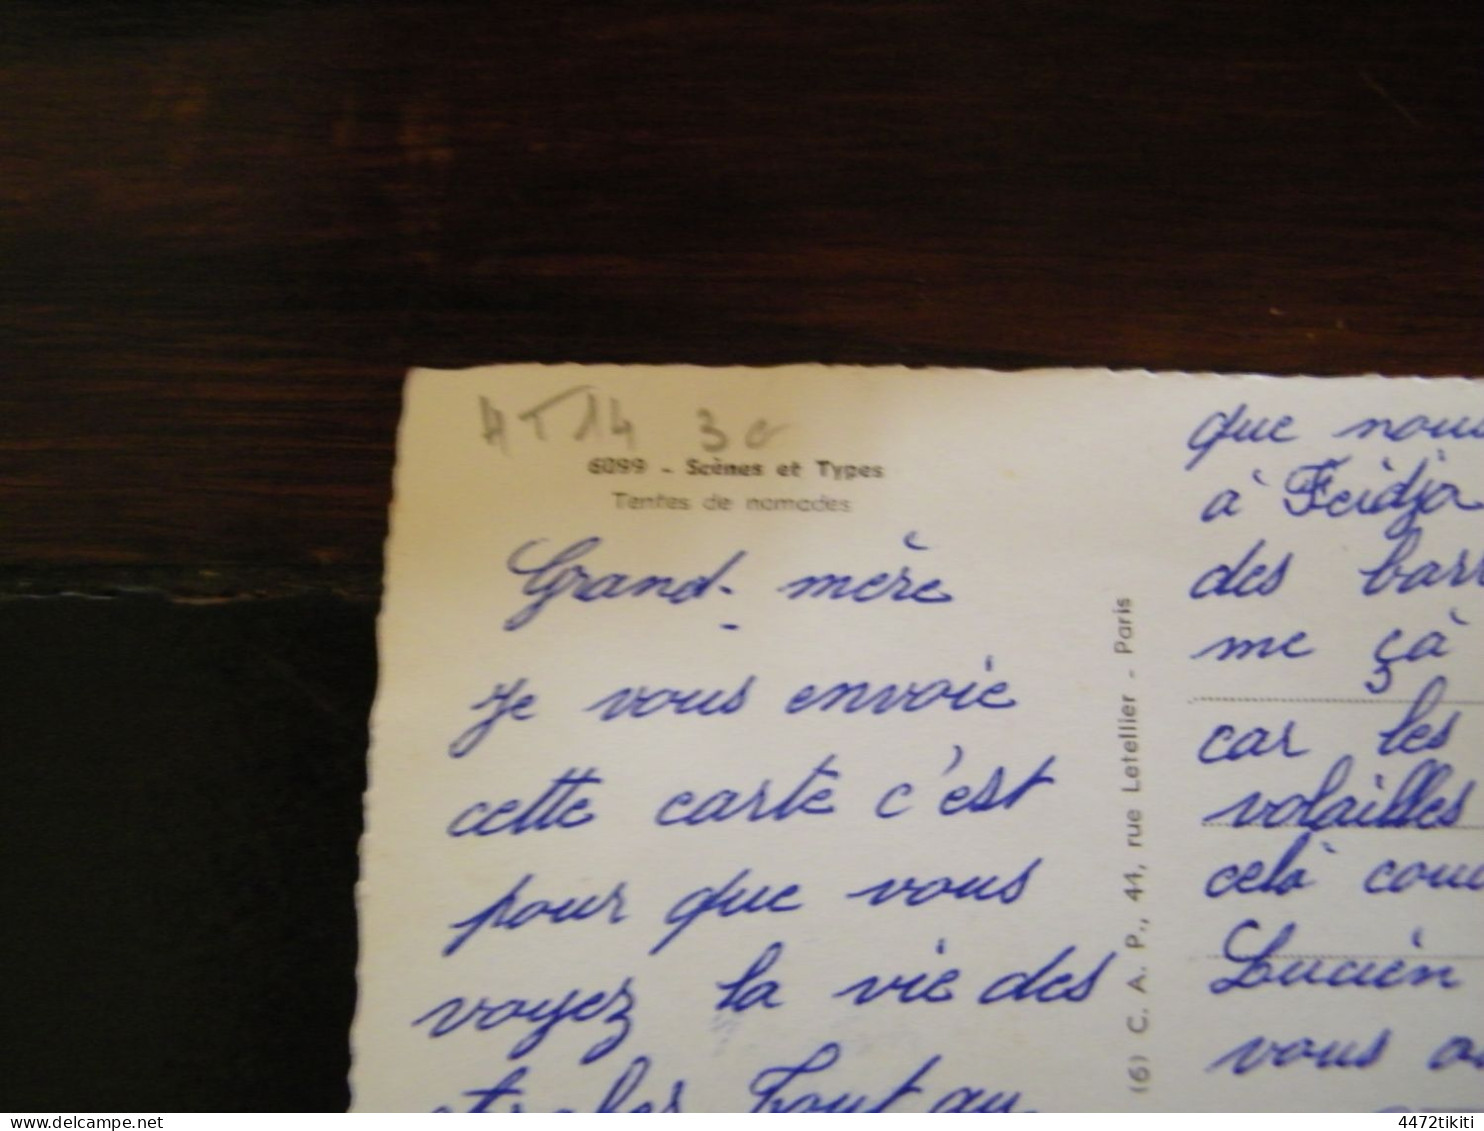 AT14 30
6099 - Scènes et Types
Tentes de nomades
Grand-mère
Je vous envoie
cette carte c'est
pour que vous
voyez la vie des
Tout au
(6) C. A. P., 44, rue Letellier - Paris
que
à Feidja
des
me çà
car les
volailles
celà
Lucien
vous
4472tikiti